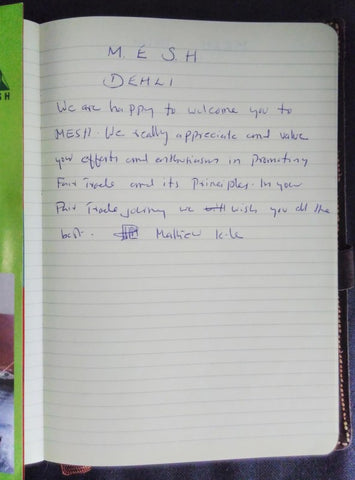 M. E S H
DEHLI
We are happy to welcome you to
MESH. We really appreciate and value
your efforts and enthusiasm in promoting
Fair Trade and its Principles. In your
Fair Trade journey we will wish you all the
best. Mathew
SH